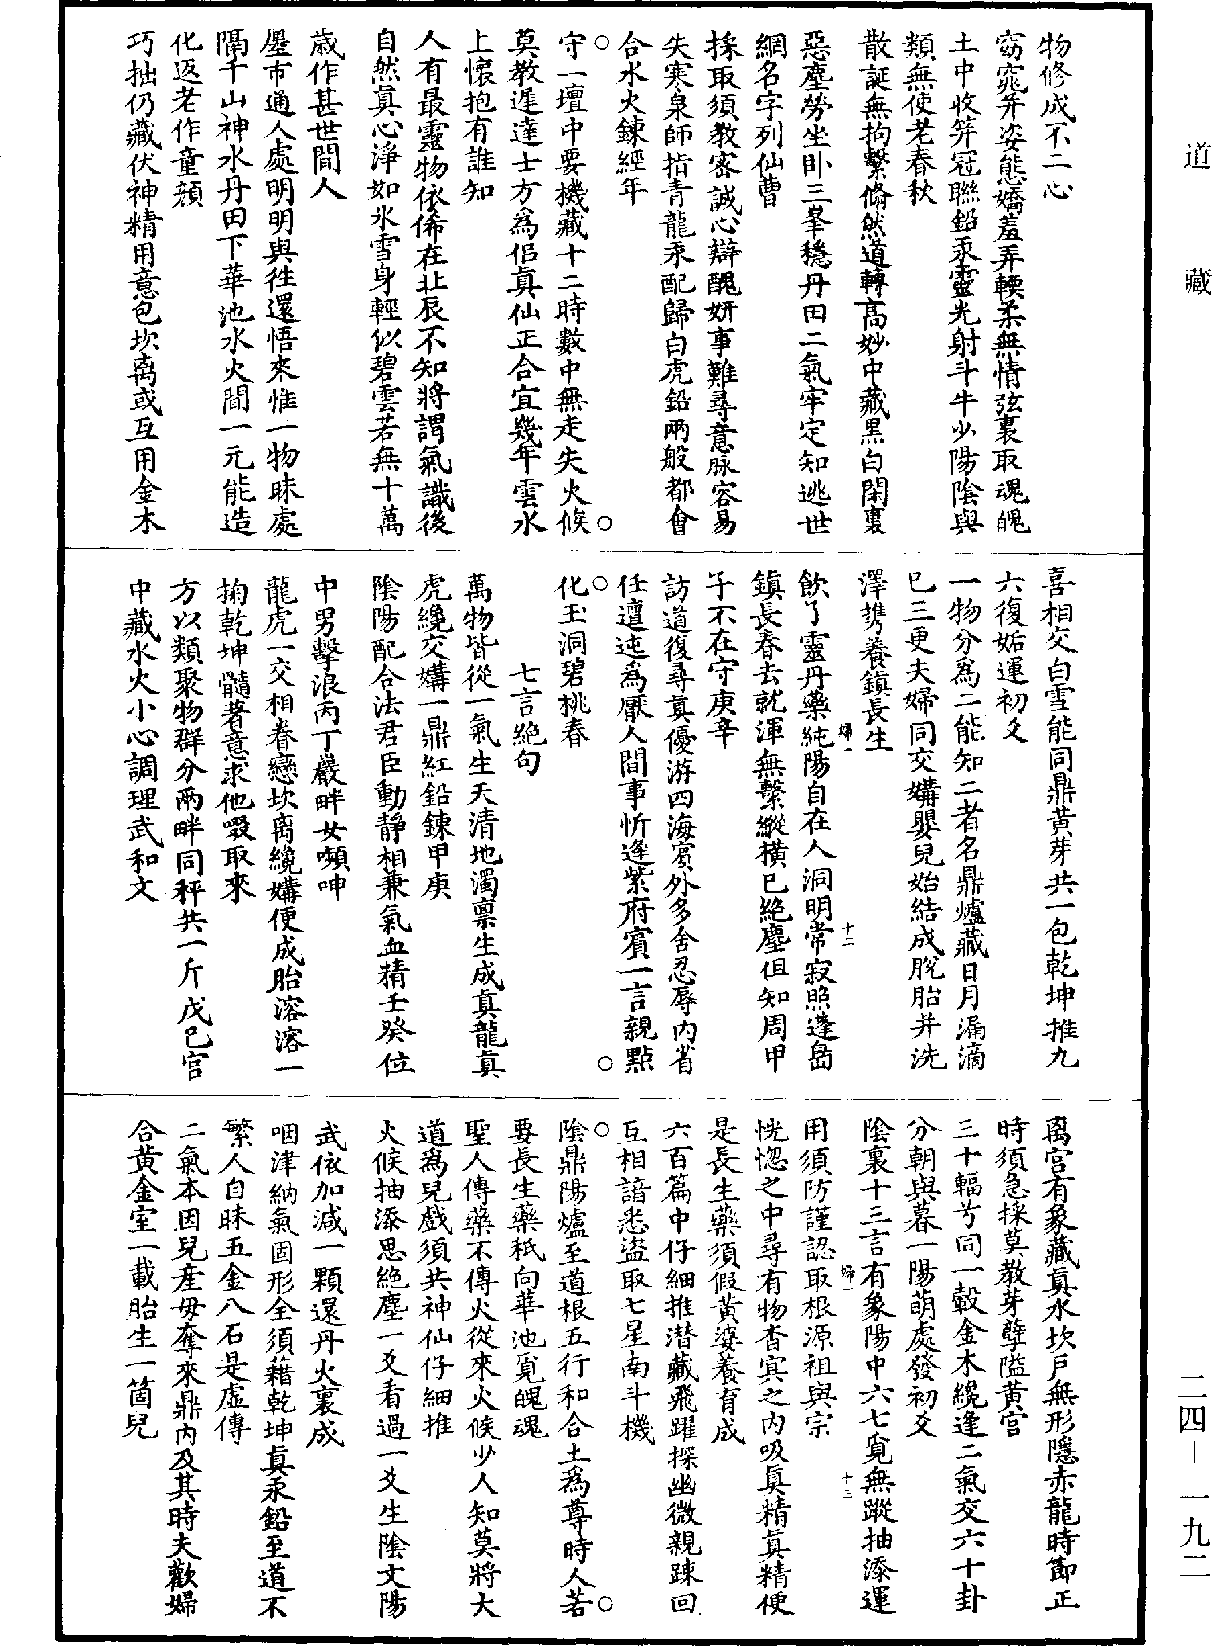 道藏
物修成不二心
窈窕笄姿態嬌羞弄輭柔無情弦裏取魂魄
土中收笄冠聯鉛汞靈光射斗牛少陽陰與
類無使老春秋
散誕無拘繫翛然道轉高妙中藏黑白閑裏
惡塵勞坐卧三峯穩丹田二氣牢定知逃世
網名字列仙曹
採取須教審誠心辯醜妍事難尋意脉容易
失寒泉師指青龍汞配歸白虎鉛兩般都會
合水火鍊經年
守一壇中要機藏十二時數中無走失火候
莫教遲達士方爲侶真仙正合宜幾年雲水
上懷抱有誰知
人有最靈物依俙在北辰不知將謂氣識後
自然真心淨如氷雪身輕似碧雲若無十萬
歲作甚世間人
壥市通人處明明與徃還悟來惟一物昧處
隔千山神水丹田下華池水火間一元能造
化返老作童顔
巧拙仍藏伏神精用意包坎离或互用金木
喜相交白雪能同鼎黄芽共一包乾坤推九
六復姤運初爻
一物分爲二能知二者名鼎爐藏日月漏滴
已三更夫婦同交媾嬰兒始結成脫胎并洗
澤㩦養鎮長生
飲了靈丹藥純陽自在人洞明常寂照蓬島
鎮長春去就渾無繫縱橫已絶塵但知周甲
子不在守庚辛
訪道復尋真優游四海濱外多舍忍辱内省
任邅迍爲厭人間事忻逢紫府賓一言親點
化玉洞碧桃春
七言絶句
萬物皆從一氣生天清地濁禀生成真龍真
虎纔交媾一鼎紅鉛鍊甲庚
陰陽配合法君臣動靜相兼氣血精壬癸位
中男擊浪丙丁巖畔女嚬呻
龍虎一交相眷戀坎离纔媾便成胎溶溶一
掬乾坤髓著意求他啜取來
方以類聚物群分兩畔同秤共一斤戊已宫
中藏水火小心調理武和文
离宫有象藏真水坎戶無形隱赤龍時節正
時須急採莫教芽孽隘黄宫
三十輻兮同一轂金木纔逢二氣交六十卦
分朝與暮一陽萌處發初爻
陰裏十三言有象陽中六七覓無蹤抽添運
用須防謹認取根源祖與宗
恍惚之中尋有物杳冥之内吸真精真精便
是長生藥須假黄婆養育成
六百篇中仔細推潜藏飛躍探幽微親踈回
互相諳悉盗取七星南斗機
陰鼎陽爐至道根五行和合土爲尊時人若
要長生藥秖向華池覓魄魂
聖人傳藥不傳火從來火候少人知莫將大
道爲兒戲須共神仙仔細推
火候抽添思絶塵一爻看過一爻生陰文陽
武依加減一顆還丹火裏成
咽津納氣固形全須藉乾坤真汞鉛至道不
繁人自昧五金八石是虛傳
二氣本因兒産母奪來鼎内及其時夫歡婦
合黄金室一載胎生一箇兒
二四—一九二